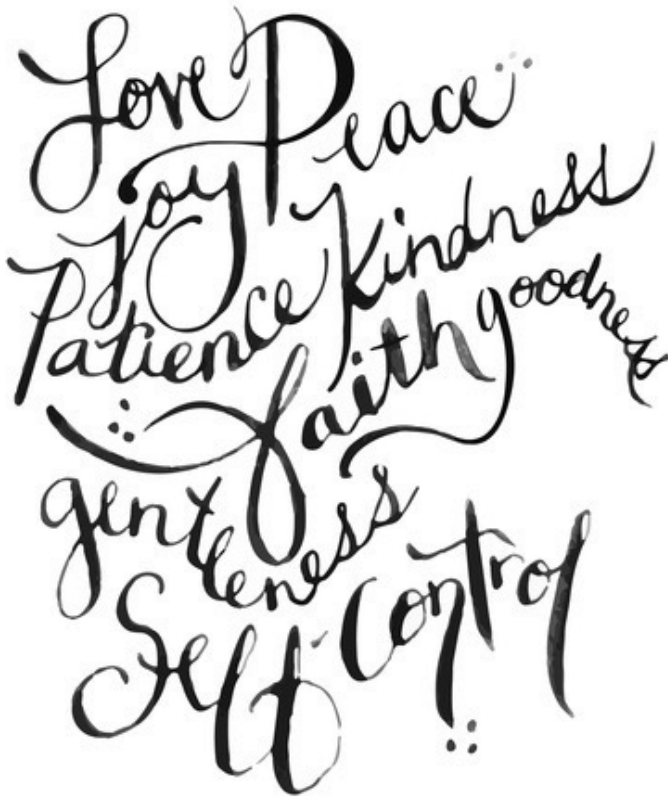 Love Peace
Joy
Patience Kindness
goodness
faith
gentleness
Self-Control